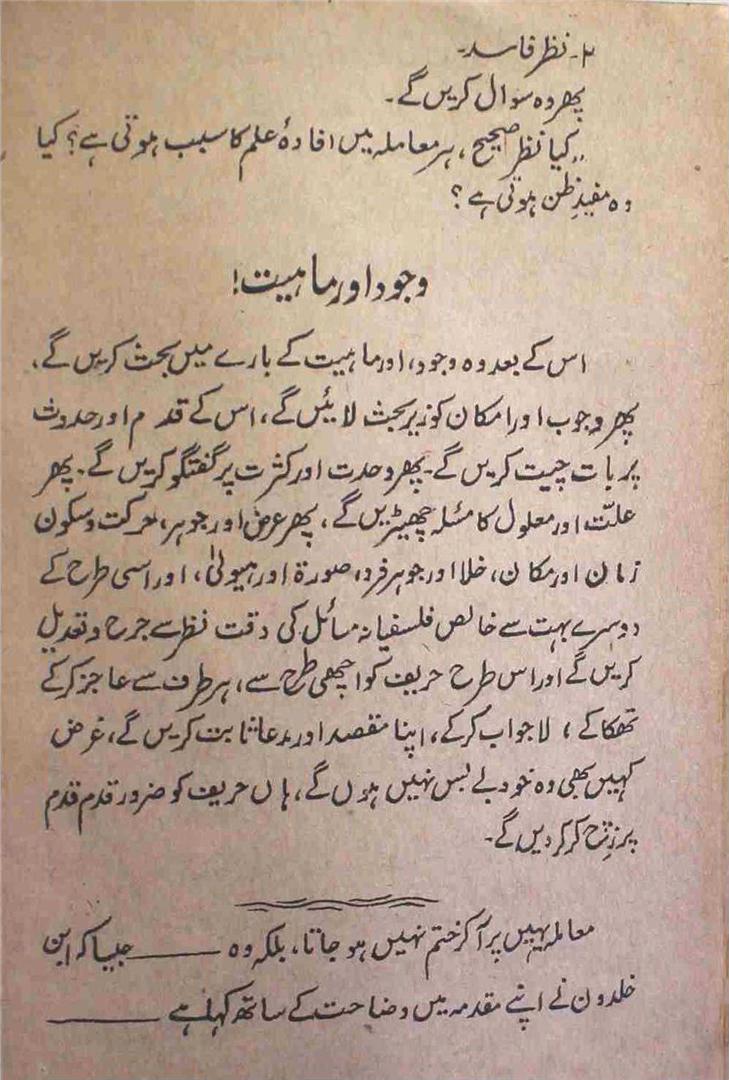 ۲۔ نظر فاسد۔
پھر وہ سوال کریں گے۔
”کیا نظر صحیح، ہر معاملہ میں افادۂ علم کا سبب ہوتی ہے؟ کیا
وہ مفیدِ ظن ہوتی ہے؟
وجود اور ماہیت!
اس کے بعد وہ وجود، اور ماہیت کے بارے میں بحث کریں گے،
پھر وجوب اور امکان کو زیر بحث لائیں گے، اس کے قدم اور حدوث
پر بات چیت کریں گے۔ پھر وحدت اور کثرت پر گفتگو کریں گے۔ پھر
علت اور معلول کا مسئلہ چھیڑیں گے، پھر عرض اور جوہر، حرکت و سکون
زمان اور مکان، خلا اور جوہر فرد، صورة اور ہیولیٰ، اور اسی طرح کے
دوسرے بہت سے خالص فلسفیانہ مسائل کی دقت نظر سے جرح و تعدیل
کریں گے اور اس طرح حریف کو اچھی طرح سے، ہر طرف سے عاجز کر کے
تھکا کے، لاجواب کر کے، اپنا مقصد اور مدعا ثابت کریں گے، غرض
کہیں بھی وہ خود بے بس نہیں ہوں گے، ہاں حریف کو ضرور قدم قدم
پر زچ کر کر دیں گے۔
معاملہ یہیں پر آکر ختم نہیں ہو جاتا، بلکہ وہ ——— جیسا کہ ابن
خلدون نے اپنے مقدمہ میں وضاحت کے ساتھ کہا ہے ———